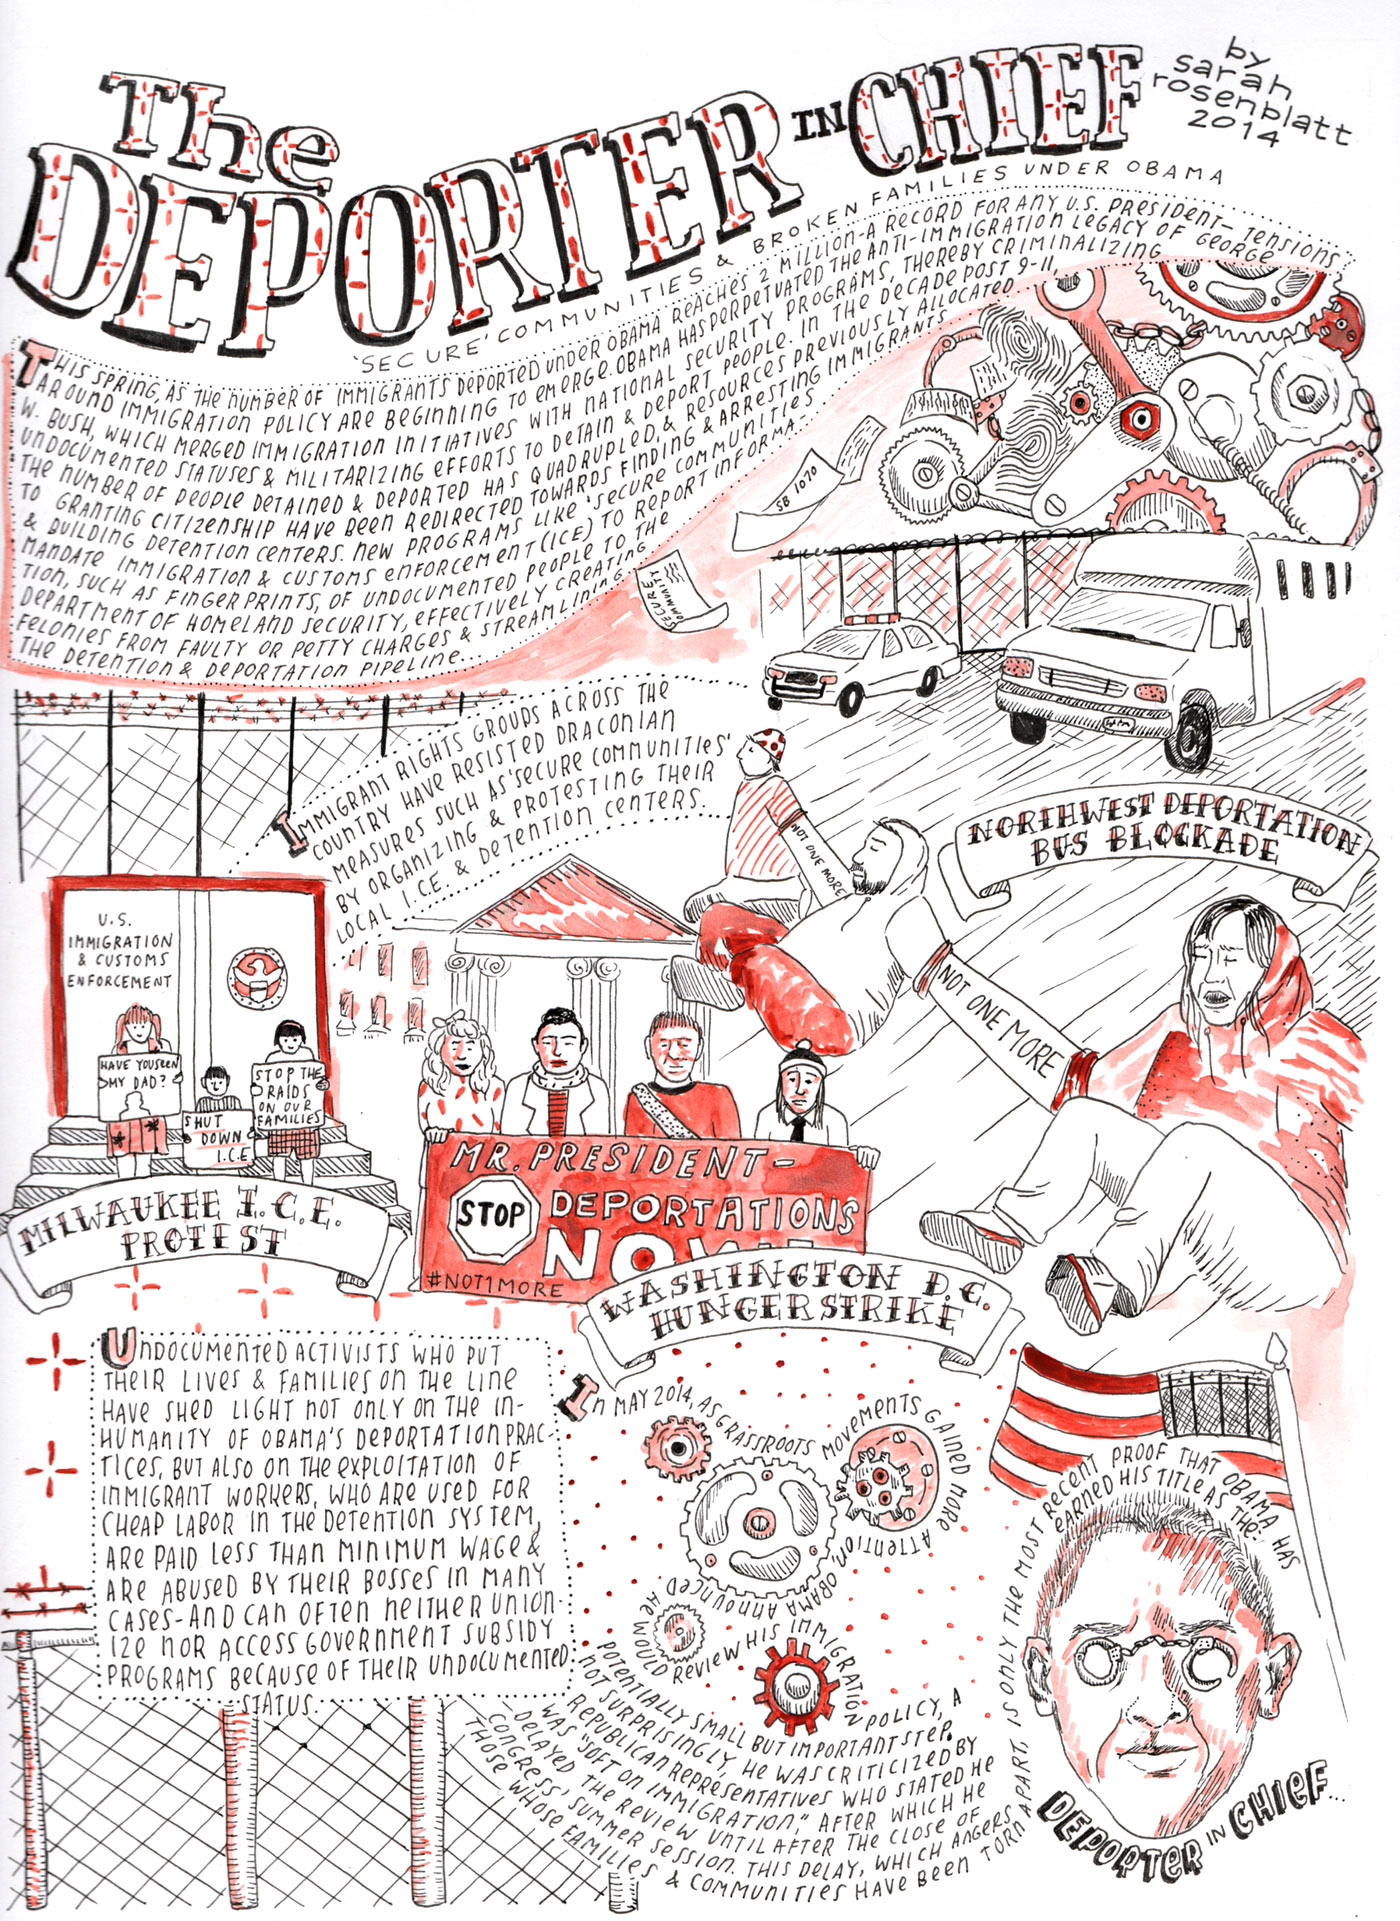 The
DEPORTER IN CHIEF
by
sarah
rosenblatt
2014
'SECURE' COMMUNITIES & BROKEN FAMILIES UNDER OBAMA
THIS SPRING, AS THE NUMBER OF IMMIGRANTS DEPORTED UNDER OBAMA REACHES 2 MILLION-A RECORD FOR ANY U.S. PRESIDENT- TENSIONS
AROUND IMMIGRATION POLICY ARE BEGINNING TO EMERGE. OBAMA HAS PERPETUATED THE ANTI-IMMIGRATION LEGACY OF GEORGE
W. BUSH, WHICH MERGED IMMIGRATION INITIATIVES WITH NATIONAL SECURITY PROGRAMS, THEREBY CRIMINALIZING
UNDOCUMENTED STATUSES & MILITARIZING EFFORTS TO DETAIN & DEPORT PEOPLE. IN THE DECADE POST 9-11,
THE NUMBER OF PEOPLE DETAINED & DEPORTED HAS QUADRUPLED, & RESOURCES PREVIOUSLY ALLOCATED
TO GRANTING CITIZENSHIP HAVE BEEN REDIRECTED TOWARDS FINDING & ARRESTING IMMIGRANTS
& BUILDING DETENTION CENTERS. NEW PROGRAMS LIKE 'SECURE COMMUNITIES
MANDATE IMMIGRATION & CUSTOMS ENFORCEMENT (ICE) TO REPORT INFORMA-
TION, SUCH AS FINGERPRINTS, OF UNDOCUMENTED PEOPLE TO THE
DEPARTMENT OF HOMELAND SECURITY, EFFECTIVELY CREATING
FELONIES FROM FAULTY OR PETTY CHARGES & STREAMLINING
THE DETENTION & DEPORTATION PIPELINE...
SB 1070
SECURE
COMMUNITIES
IMMIGRANT RIGHTS GROUPS ACROSS THE
COUNTRY HAVE RESISTED DRACONIAN
MEASURES SUCH AS 'SECURE COMMUNITIES'
BY ORGANIZING & PROTESTING THEIR
LOCAL I.C.E. & DETENTION CENTERS.
NORTHWEST DEPORTATION
BUS BLOCKADE
NOT ONE MORE
NOT ONE MORE
U.S.
IMMIGRATION
& CUSTOMS
ENFORCEMENT
HAVE YOU SEEN
MY DAD?
SHUT
DOWN
I.C.E.
STOP THE
RAIDS
ON OUR
FAMILIES
MILWAUKEE I.C.E.
PROTEST
MR. PRESIDENT-
STOP DEPORTATIONS
NOW
#NOT1MORE
WASHINGTON D.C.
HUNGER STRIKE
UNDOCUMENTED ACTIVISTS WHO PUT
THEIR LIVES & FAMILIES ON THE LINE
HAVE SHED LIGHT NOT ONLY ON THE IN-
HUMANITY OF OBAMA'S DEPORTATION PRAC-
TICES, BUT ALSO ON THE EXPLOITATION OF
IMMIGRANT WORKERS, WHO ARE USED FOR
CHEAP LABOR IN THE DETENTION SYSTEM,
ARE PAID LESS THAN MINIMUM WAGE &
ARE ABUSED BY THEIR BOSSES IN MANY
CASES-AND CAN OFTEN NEITHER UNION-
IZE NOR ACCESS GOVERNMENT SUBSIDY
PROGRAMS BECAUSE OF THEIR UNDOCUMENTED
STATUS.
IN MAY 2014, AS GRASSROOTS MOVEMENTS GAINED MORE
ATTENTION, OBAMA ANNOUNCED
HE WOULD REVIEW HIS IMMIGRATION POLICY, A
POTENTIALLY SMALL BUT IMPORTANT STEP.
NOT SURPRISINGLY, HE WAS CRITICIZED BY
REPUBLICAN REPRESENTATIVES WHO STATED HE
WAS "SOFT ON IMMIGRATION," AFTER WHICH HE
DELAYED THE REVIEW UNTIL AFTER THE CLOSE OF
CONGRESS' SUMMER SESSION. THIS DELAY, WHICH ANGERS
THOSE WHOSE FAMILIES & COMMUNITIES HAVE BEEN TORN APART, IS ONLY THE MOST RECENT PROOF THAT OBAMA HAS
EARNED HIS TITLE AS THE:
DEPORTER IN CHIEF...